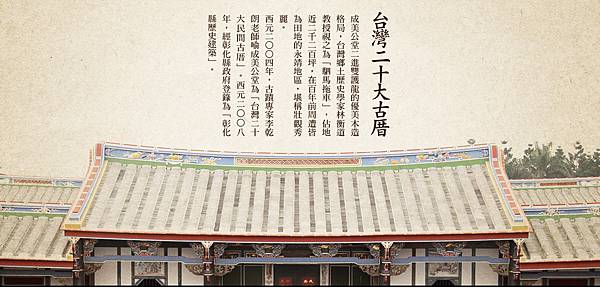 台灣二十大古厝
成美公堂二進雙護龍的優美木造
格局，台灣鄉土歷史學家林衡道
教授視之為「駟馬拖車」，佔地
近二千二百坪，在百年前周遭皆
為田地的永靖地區，堪稱壯觀秀
麗。
西元二〇〇四年，古蹟專家李乾
朗老師喻成美公堂為「台灣二十
大民間古厝」。西元二〇〇八
年，經彰化縣政府登錄為「彰化
縣歷史建築」。